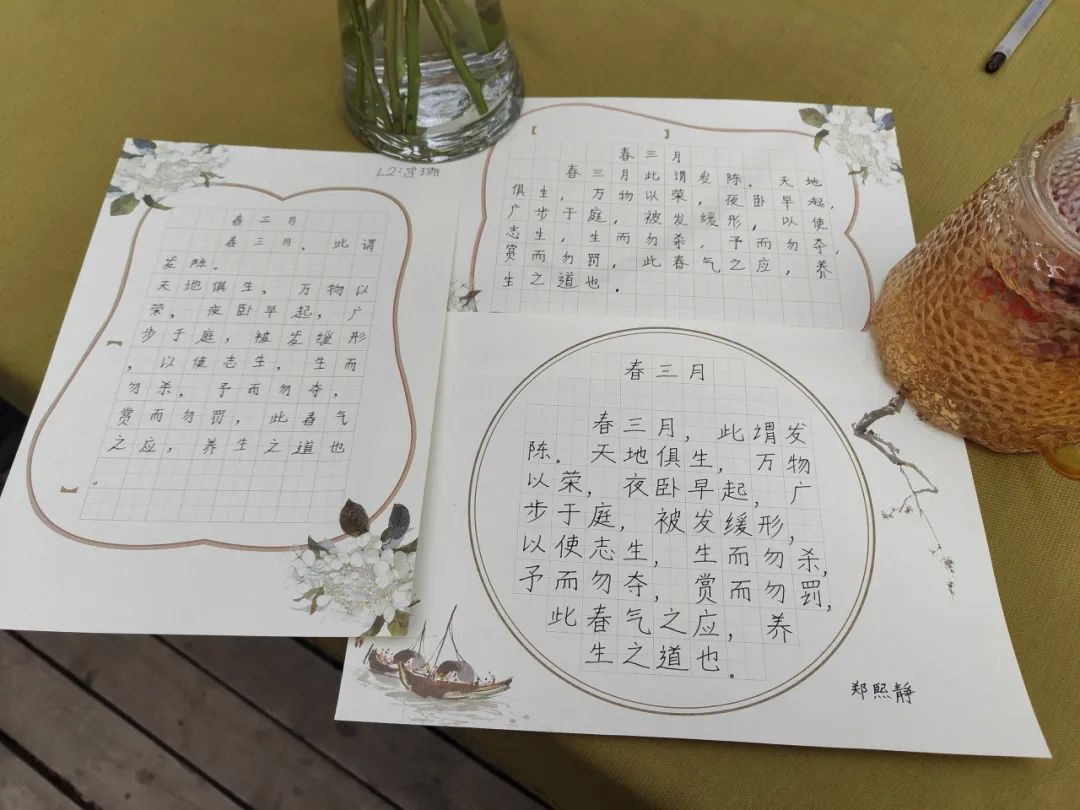 春三月
春三月，此谓
发陈．
天地俱生，万物以
荣，夜卧早起，广
步于庭，被发缓形
，以使志生，生而
勿杀，予而勿夺，
赏而勿罚，此春气
之应，养生之道也
。
春三月
春三月此谓发陈．天地
俱生，万物以荣，夜卧早起，
广步于庭，被发缓形，以使
志生，生而勿杀，予而勿夺，
赏而勿罚，此春气之应，养
生之道也．
春三月
春三月，此谓发
陈．天地俱生，万物
以荣，夜卧早起，广
步于庭，被发缓形，
以使志生，生而勿杀，
予而勿夺，赏而勿罚，
此春气之应，养
生之道也．
郑熙静